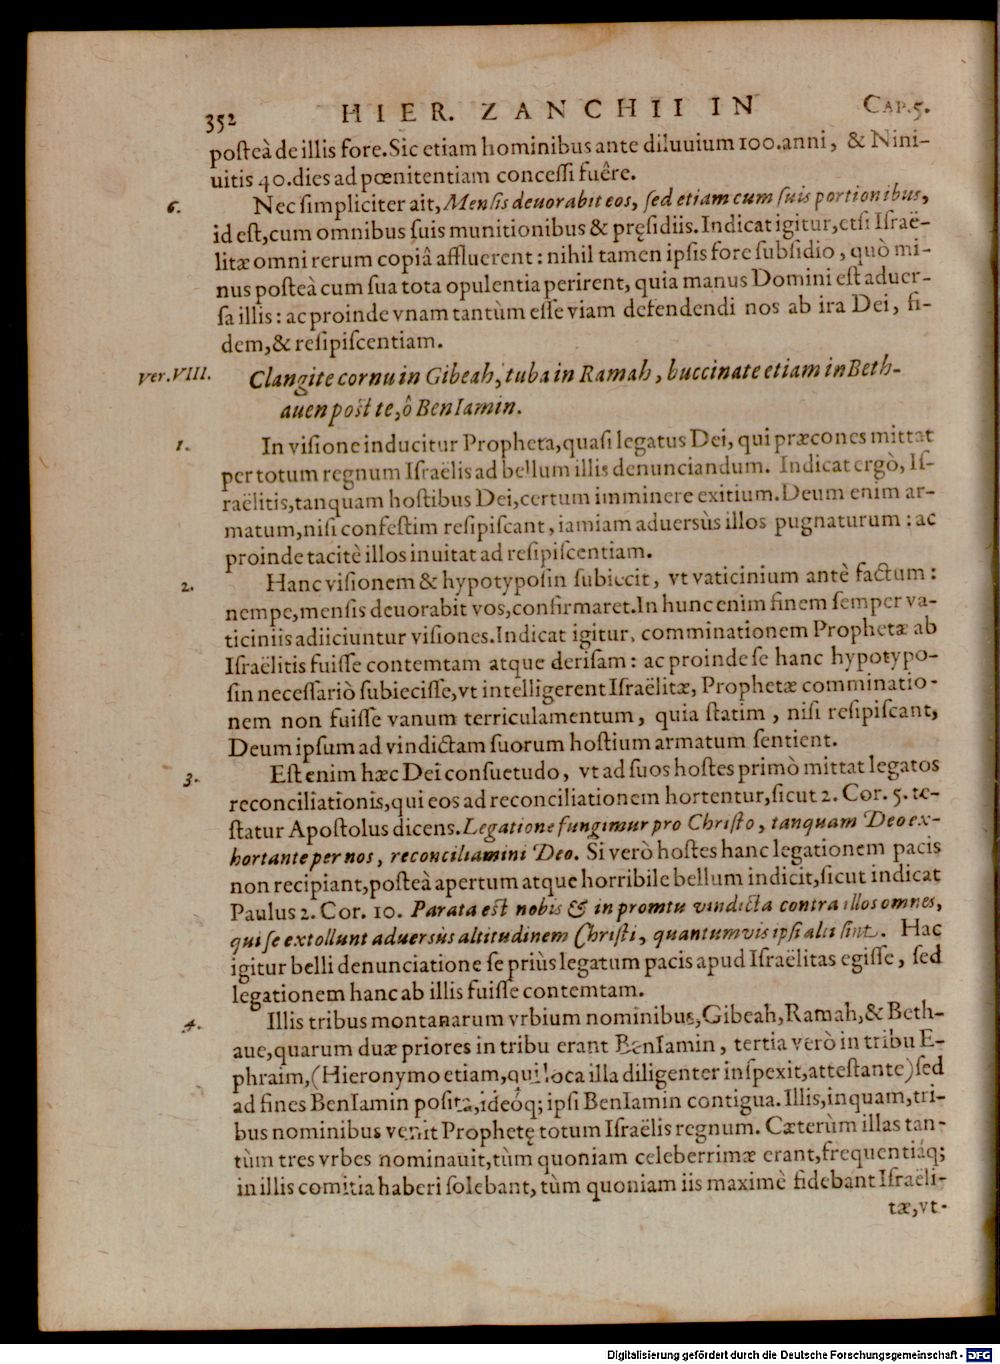 352 HIER. ZANCHII IN CAP.5.
posteà de illis fore. Sic etiam hominibus ante diluuium 100. anni, & Nini-
uitis 40. dies ad pœnitentiam concessi fuêre.
6. Nec simpliciter ait, Mensis deuorabit eos, sed etiam cum suis portionibus,
id est, cum omnibus suis munitionibus & pręsidiis. Indicat igitur, etsi Israë-
litæ omni rerum copiâ affluerent: nihil tamen ipsis fore subsidio, quò mi-
nus posteà cum sua tota opulentia perirent, quia manus Domini est aduer-
sa illis: ac proinde vnam tantùm esse viam defendendi nos ab ira Dei, fi-
dem, & resipiscentiam.
ver. VIII. Clangite cornu in Gibeah, tuba in Ramah, buccinate etiam in Beth-
auen post te, ô BenIamin.
1. In visione inducitur Propheta, quasi legatus Dei, qui præcones mittat
per totum regnum Israëlis ad bellum illis denunciandum. Indicat ergò, Is-
raëlitis, tanquam hostibus Dei, certum imminere exitium. Deum enim ar-
matum, nisi confestim resipiscant, iamiam aduersùs illos pugnaturum: ac
proinde tacitè illos inuitat ad resipiscentiam.
2. Hanc visionem & hypotyposin subiecit, vt vaticinium antè factum:
nempe, mensis deuorabit vos, confirmaret. In hunc enim finem semper va-
ticiniis adiiciuntur visiones. Indicat igitur, comminationem Prophetæ ab
Israëlitis fuisse contemtam atque derisam: ac proinde se hanc hypotypo-
sin necessariò subiecisse, vt intelligerent Israëlitæ, Prophetæ comminatio-
nem non fuisse vanum terriculamentum, quia statim, nisi resipiscant,
Deum ipsum ad vindictam suorum hostium armatum sentient.
3. Est enim hæc Dei consuetudo, vt ad suos hostes primò mittat legatos
reconciliationis, qui eos ad reconciliationem hortentur, sicut 2. Cor. 5. te-
statur Apostolus dicens. Legatione fungimur pro Christo, tanquam Deo ex-
hortante per nos, reconciliamini Deo. Si verò hostes hanc legationem pacis
non recipiant, posteà apertum atque horribile bellum indicit, sicut indicat
Paulus 2. Cor. 10. Parata est nobis & in promtu vindicta contra illos omnes,
qui se extollunt aduersùs altitudinem Christi, quantumuis ipsi alti sint. Hac
igitur belli denunciatione se priùs legatum pacis apud Israëlitas egisse, sed
legationem hanc ab illis fuisse contemtam.
4. Illis tribus montanarum vrbium nominibus, Gibeah, Ramah, & Beth-
aue, quarum duæ priores in tribu erant BenIamin, tertia verò in tribu E-
phraim, (Hieronymo etiam, qui loca illa diligenter inspexit, attestante) sed
ad fines BenIamin posita, ideóq; ipsi BenIamin contigua. Illis, inquam, tri-
bus nominibus venit Prophetę totum Israëlis regnum. Cæterùm illas tan-
tùm tres vrbes nominauit, tùm quoniam celeberrimæ erant, frequentiáq;
in illis comitia haberi solebant, tùm quoniam iis maximè fidebant Israëli-
tæ, vt-
Digitalisierung gefördert durch die Deutsche Forschungsgemeinschaft - DFG